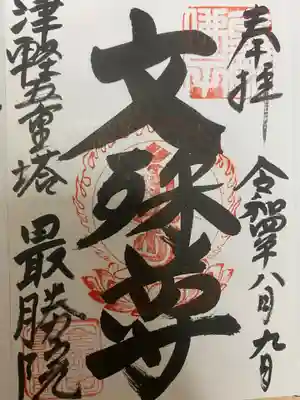 奉拝 令和四年八月九日
文殊尊
津軽五重塔 最勝院